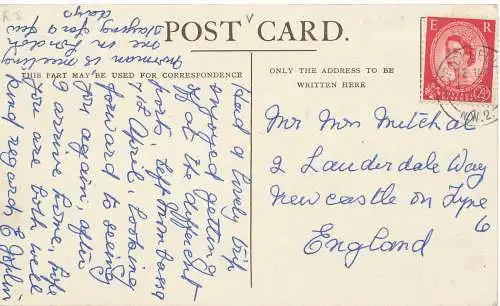 POST CARD.
THIS PART MAY BE USED FOR CORRESPONDENCE
ONLY THE ADDRESS TO BE
WRITTEN HERE
Had a lovely trip
enjoyed getting
off at the different
ports, left Mombassa
7th April, looking
forward to seeing
you again, after
I arrive home, hope
you are both well
kind regards, E Joplin
Norman is meeting
me in London
staying for a few
days
E R
2½D
W.2.
Mr Mrs Mitchal
2 Lauderdale Way
Newcastle on Tyne
6
England